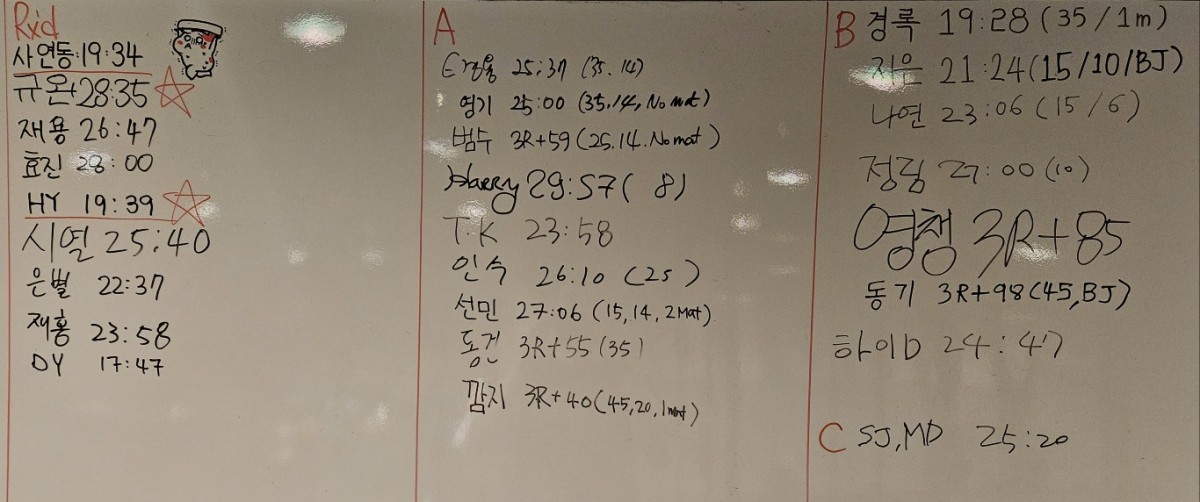 Rxd
사연동:19:34
규온+28:35
재용 26:47
효진 28:00
HY 19:39
시열 25:40
은별 22:37
재홍 23:58
DY 17:47
A
25:37 (35.14)
영기 25:00 (35.14, No mat)
범수 3R+59 (25.14. No mat)
Harry 29:57 ( 8)
T.K 23:58
인수 26:10 (25)
선민 27:06 (15, 14, 2Mat)
동건 3R+55 (35)
깜지 3R+40 (45, 20, 1mat)
B
경록 19:28 (35 / 1m)
지은 21:24 (15/10/BJ)
나연 23:06 (15 / 6)
정림 27:00 (10)
영챙 3R+85
동기 3R+98 (45, BJ)
하이D 24:47
C SJ, MD 25:20